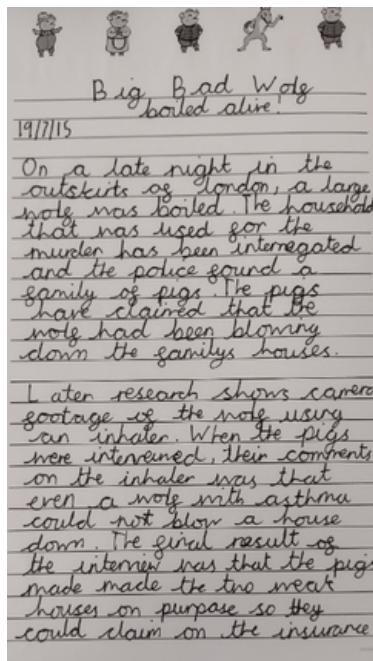 Big Bad Wolf
boiled alive!
19/7/15
On a late night in the
outskirts of london, a large
wolf was boiled. The household
that was used for the
murder has been interregated
and the police found a
family of pigs. The pigs
have claimed that the
wolf had been blowing
down the familys houses.
Later research shows camera
footage of the wolf using
an inhaler. When the pigs
were interveiwed, their comments
on the inhaler was that
even a wolf with asthma
could not blow a house
down. The final result of
the interview was that the pigs
made made the two weak
houses on purpose so they
could claim on the insurance